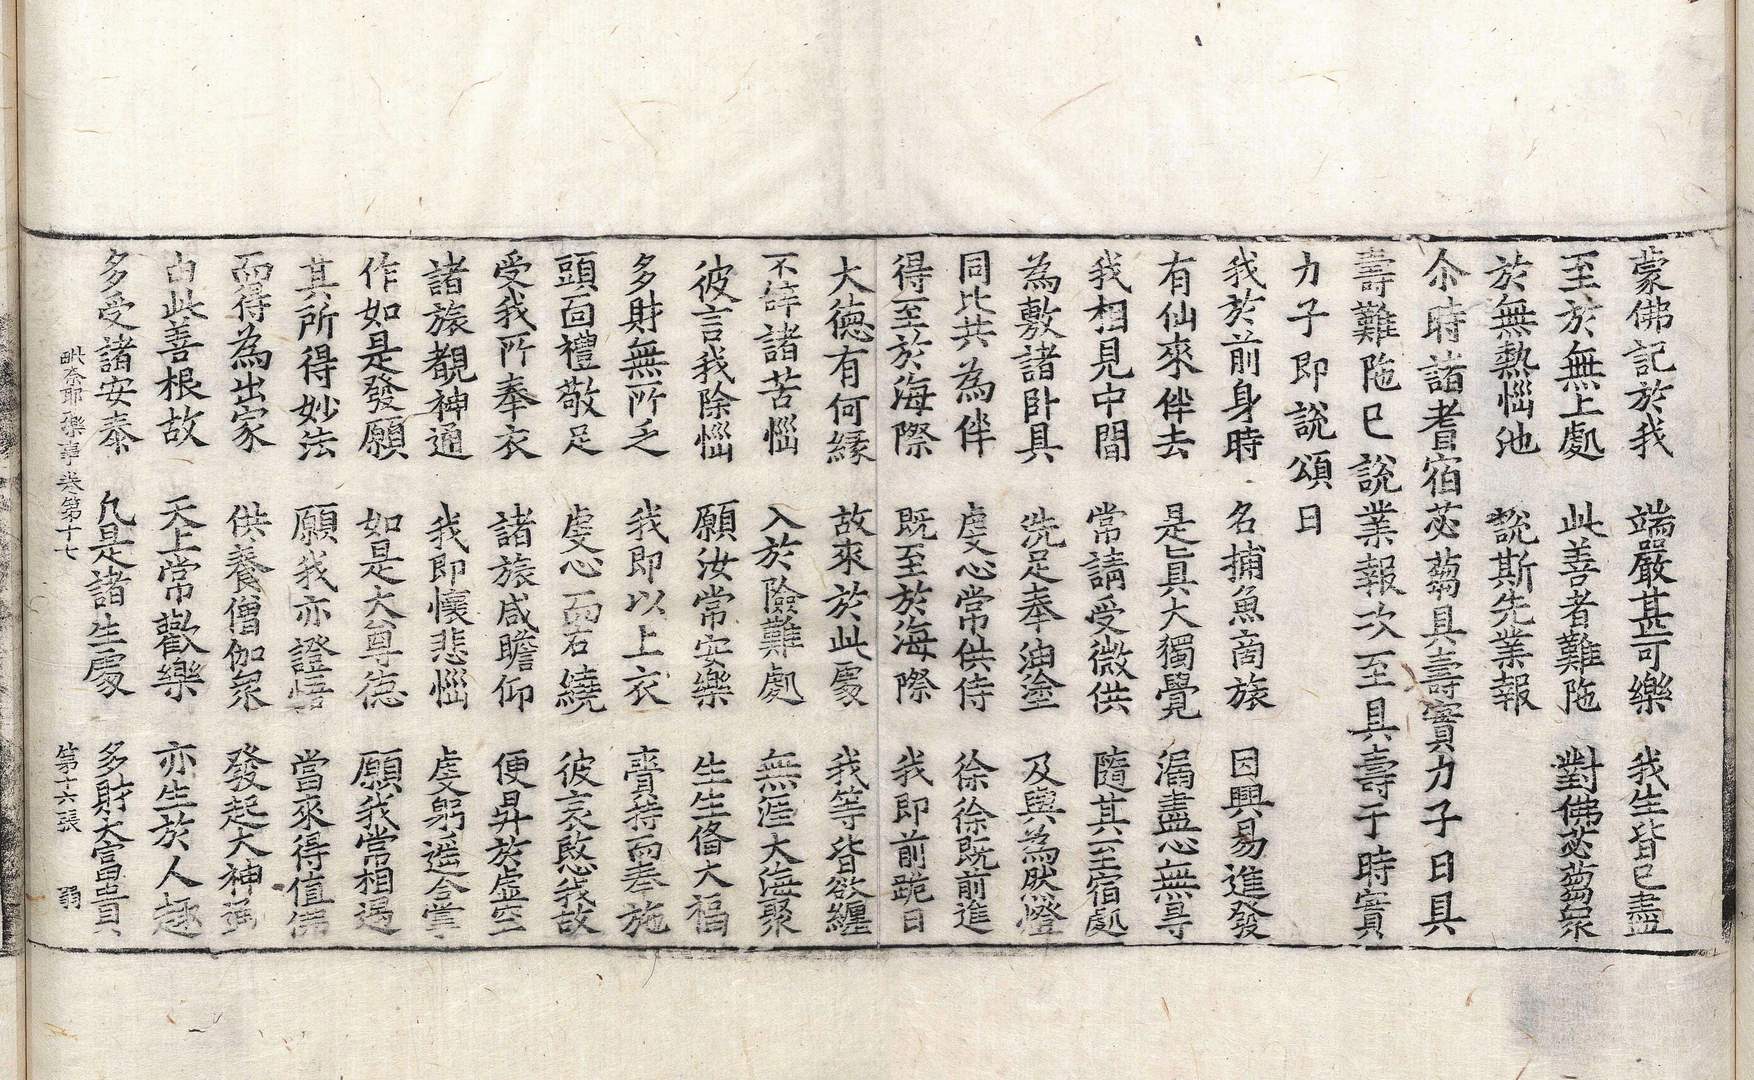 蒙佛記於我　端嚴甚可樂　我生皆已盡
至於無上處　此善者難陁　對佛苾蒭衆
於無熱惱池　說斯先業報
尒時諸耆宿苾蒭具壽實力子曰具
壽難陁已說業報次至具壽于時實
力子即說頌曰
我於前身時　名捕魚商旅　因興易進發
有仙來伴去　是真大獨覺　漏盡心無㝵
我相見中間　常請受微供　隨其至宿處
為敷諸卧具　洗足奉油塗　及與為然燈
同比共為伴　虔心常供侍　徐徐既前進
得至於海際　既至於海際　我即前跪曰
大德有何緣　故來於此處　我等皆欲纏
不辞諸苦惱　入於險難處　無涯大海聚
彼言我除惱　願汝常安樂　生生俻大福
多財無所乏　我即以上衣　賷持而奉施
頭面禮敬足　虔心而右繞　彼哀愍我故
受我所奉衣　諸旅咸瞻仰　便昇於虛空
諸旅覩神通　我即懷悲惱　虔躬遥合掌
作如是發願　如是大尊德　願我常相遇
其所得妙法　願我亦證悟　當來得值佛
而得為出家　供養僧伽衆　發起大神通
由此善根故　天上常歡樂　亦生於人趣
多受諸安泰　凡是諸生處　多財大富貴
毗奈耶藥事卷第十七　第十六張　弱